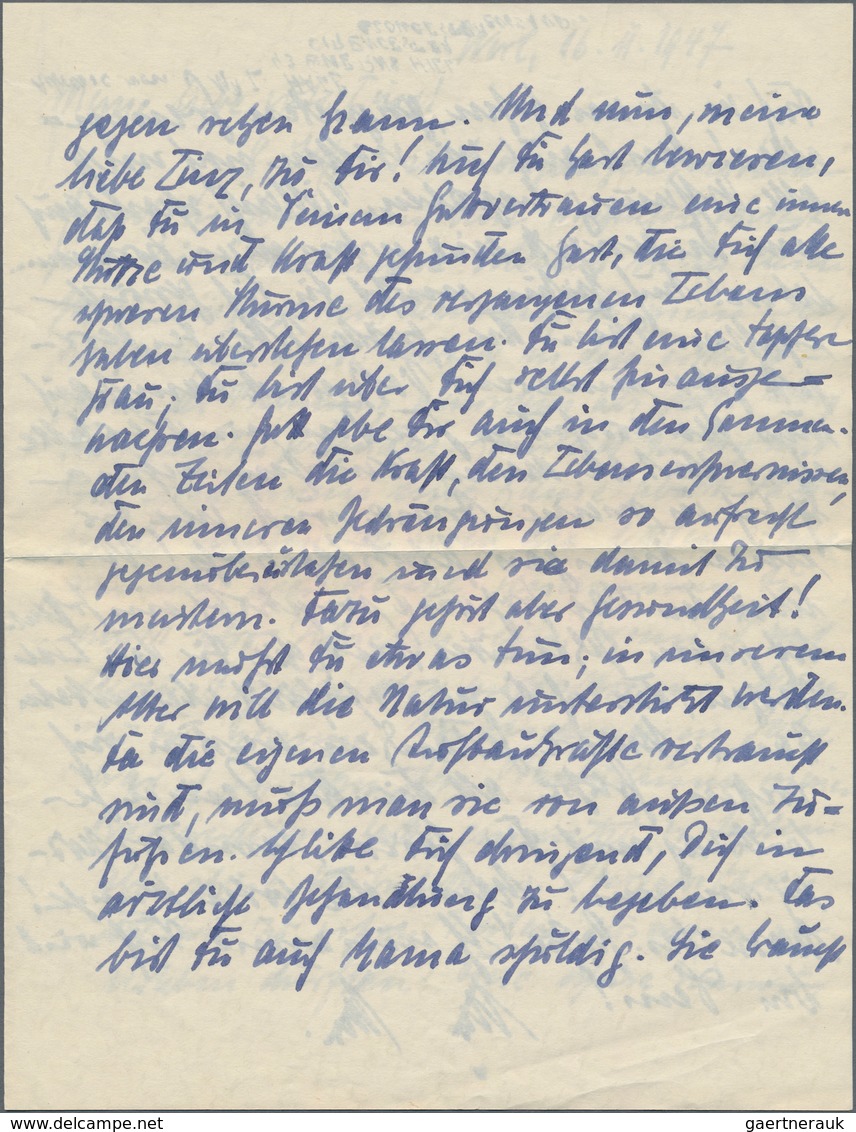 gegen setzen kann. Und nun, meine
liebe Inz, zu Dir! Auch Du hast bewiesen,
daß Du in Deinem Gottvertrauen eine innere
Stütze und Kraft gefunden hast, die Dich alle
schweren Stürme des vergangenen Lebens
haben überstehen lassen. Du bist eine tapfere
Frau; Du bist über Dich selbst hinausge=
wachsen. Gott gebe Dir auch in den kommen-
den Zeiten die Kraft, den Lebenserschwernissen,
den inneren Bedrängungen so aufrecht
gegenüberstehen und sie damit zu
meistern. Dazu gehört aber Gesundheit!
Hier mußt Du etwas tun; in unserem
Alter will die Natur unterstützt werden.
Da die eigenen Aufbaukräfte verbraucht
sind, muß man sie von außen zu=
führen. Ich bitte Dich dringend, Dich in
ärztliche Behandlung zu begeben. Das
bist Du auch Mama schuldig. Sie braucht
delcampe.net
gaertnerauk